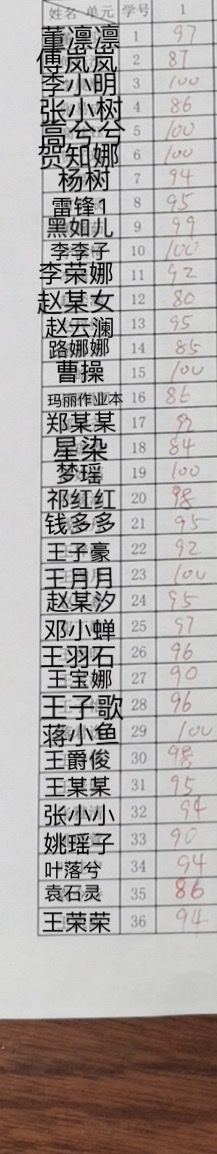 姓名 单元 学号 1
董凛凛 1 97
傅凤凤 2 87
李小明 3 100
张小树 4 86
高兮兮 5 100
贺知娜 6 100
杨树 7 94
雷锋1 8 95
黑如儿 9 99
李李子 10 100
李荣娜 11 92
赵某女 12 80
赵云澜 13 95
路娜娜 14 85
曹操 15 100
玛丽作业本 16 86
郑某某 17
星染 18 84
梦瑶 19 100
祁红红 20 98
钱多多 21 95
王子豪 22 92
王月月 23 100
赵某汐 24 95
邓小蝉 25 97
王羽石 26 96
王宝娜 27 90
王子歌 28 96
蒋小鱼 29 100
王爵俊 30 98
王某某 31 95
张小小 32 94
姚瑶子 33 90
叶落兮 34 94
袁石灵 35 86
王荣荣 36 94